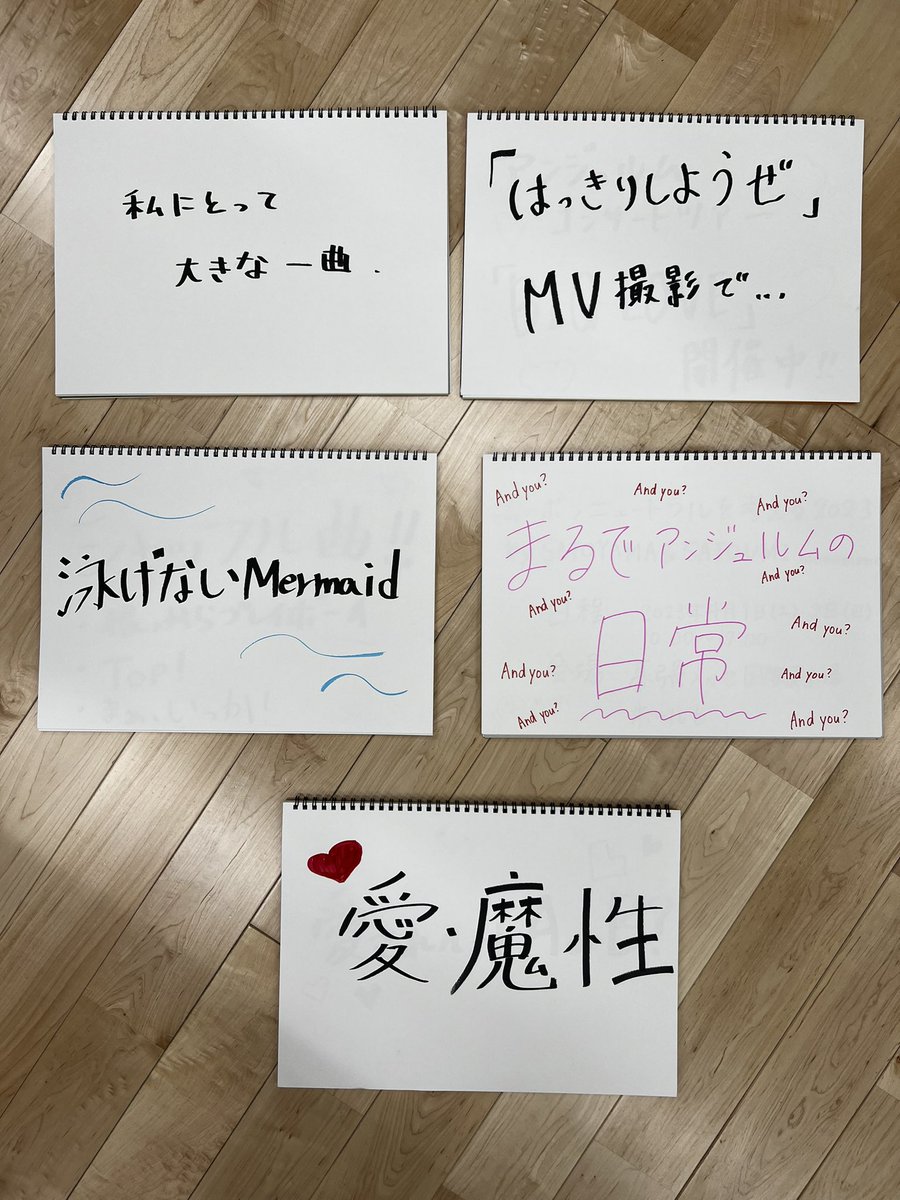 私にとって
大きな一曲.
「はっきりしようぜ」
MV撮影で...
泳げないMermaid
And you?
And you?
And you?
まるでアンジュルムの
And you?
And you?
日常
And you?
And you?
And you?
And you?
And you?
愛・魔性